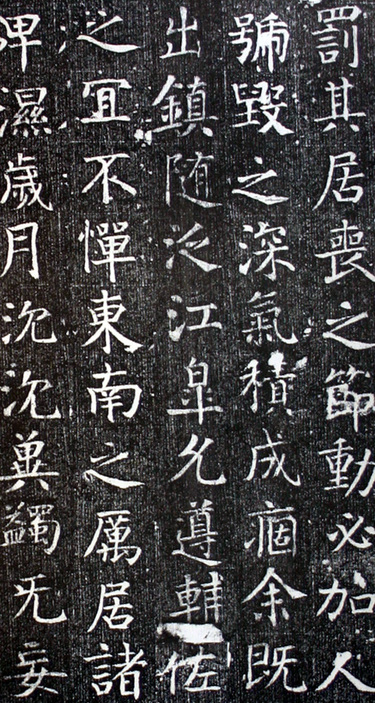 罰其居喪之節動必加人
號毀之深氣積成痼余既
出鎮随泛江皐允遵輔佐
之冝不憚東南之厲居諸
卑濕歲月沈沈兾蠲旡妄